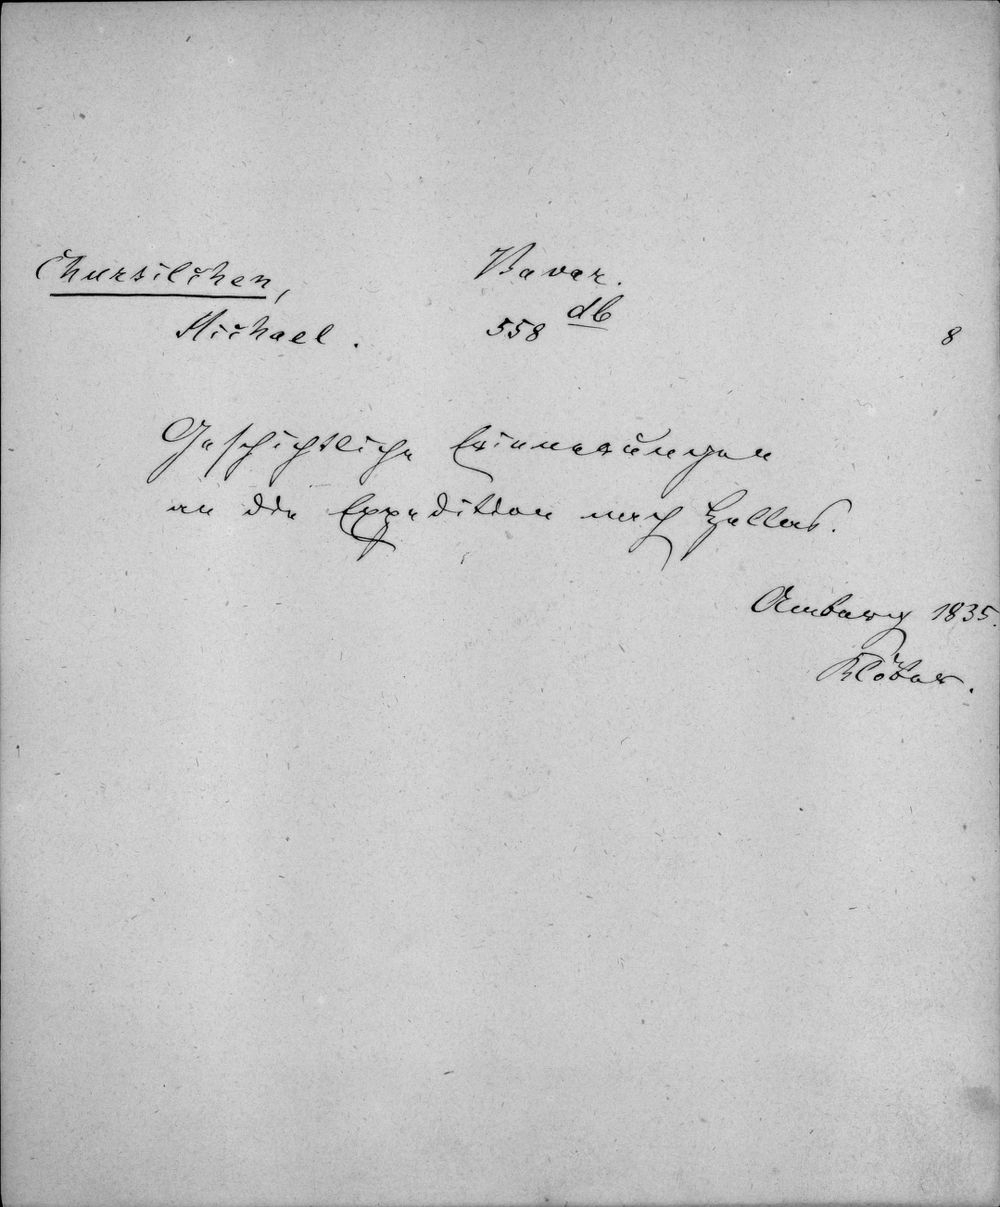 Chursilchen, Bavar.
Michael. 558 db 8
Geschichtliche Erinnerungen
an die Expedition nach Hellas.
Amberg 1835.
Klöber.